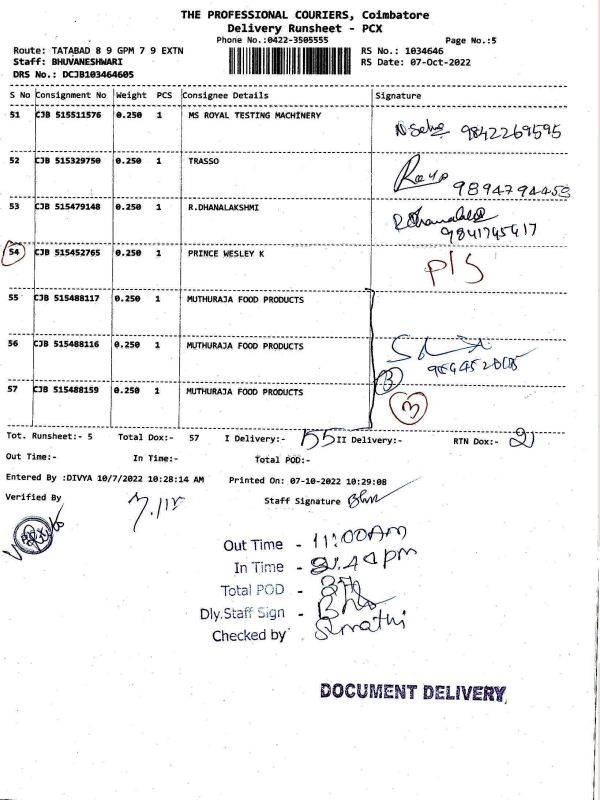 THE PROFESSIONAL COURIERS, Coimbatore
Delivery Runsheet - PCX
Phone No.:0422-3505555
Page No.:5
Route: TATABAD 8 9 GPM 7 9 EXTN
RS No.: 1034646
Staff: BHUVANESHWARI
RS Date: 07-Oct-2022
DRS No.: DCJB103464605
S No Consignment No Weight PCS Consignee Details Signature
51 CJB 515511576 0.250 1 MS ROYAL TESTING MACHINERY
9842269595
52 CJB 515329750 0.250 1 TRASSO
53 CJB 515479148 0.250 1 R.DHANALAKSHMI
R.Dhanalakshmi
9841745417
54 CJB 515452765 0.250 1 PRINCE WESLEY K
P/S
55 CJB 515488117 0.250 1 MUTHURAJA FOOD PRODUCTS
56 CJB 515488116 0.250 1 MUTHURAJA FOOD PRODUCTS
3
57 CJB 515488159 0.250 1 MUTHURAJA FOOD PRODUCTS
3
Tot. Runsheet:- 5 Total Dox:- 57 I Delivery:- 55 II Delivery:- RTN Dox:- 2
Out Time:- In Time:- Total POD:-
Entered By :DIVYA 10/7/2022 10:28:14 AM Printed On: 07-10-2022 10:29:08
Verified By Staff Signature
Out Time - 11:00AM
In Time -
Total POD -
Dly.Staff Sign -
Checked by
DOCUMENT DELIVERY